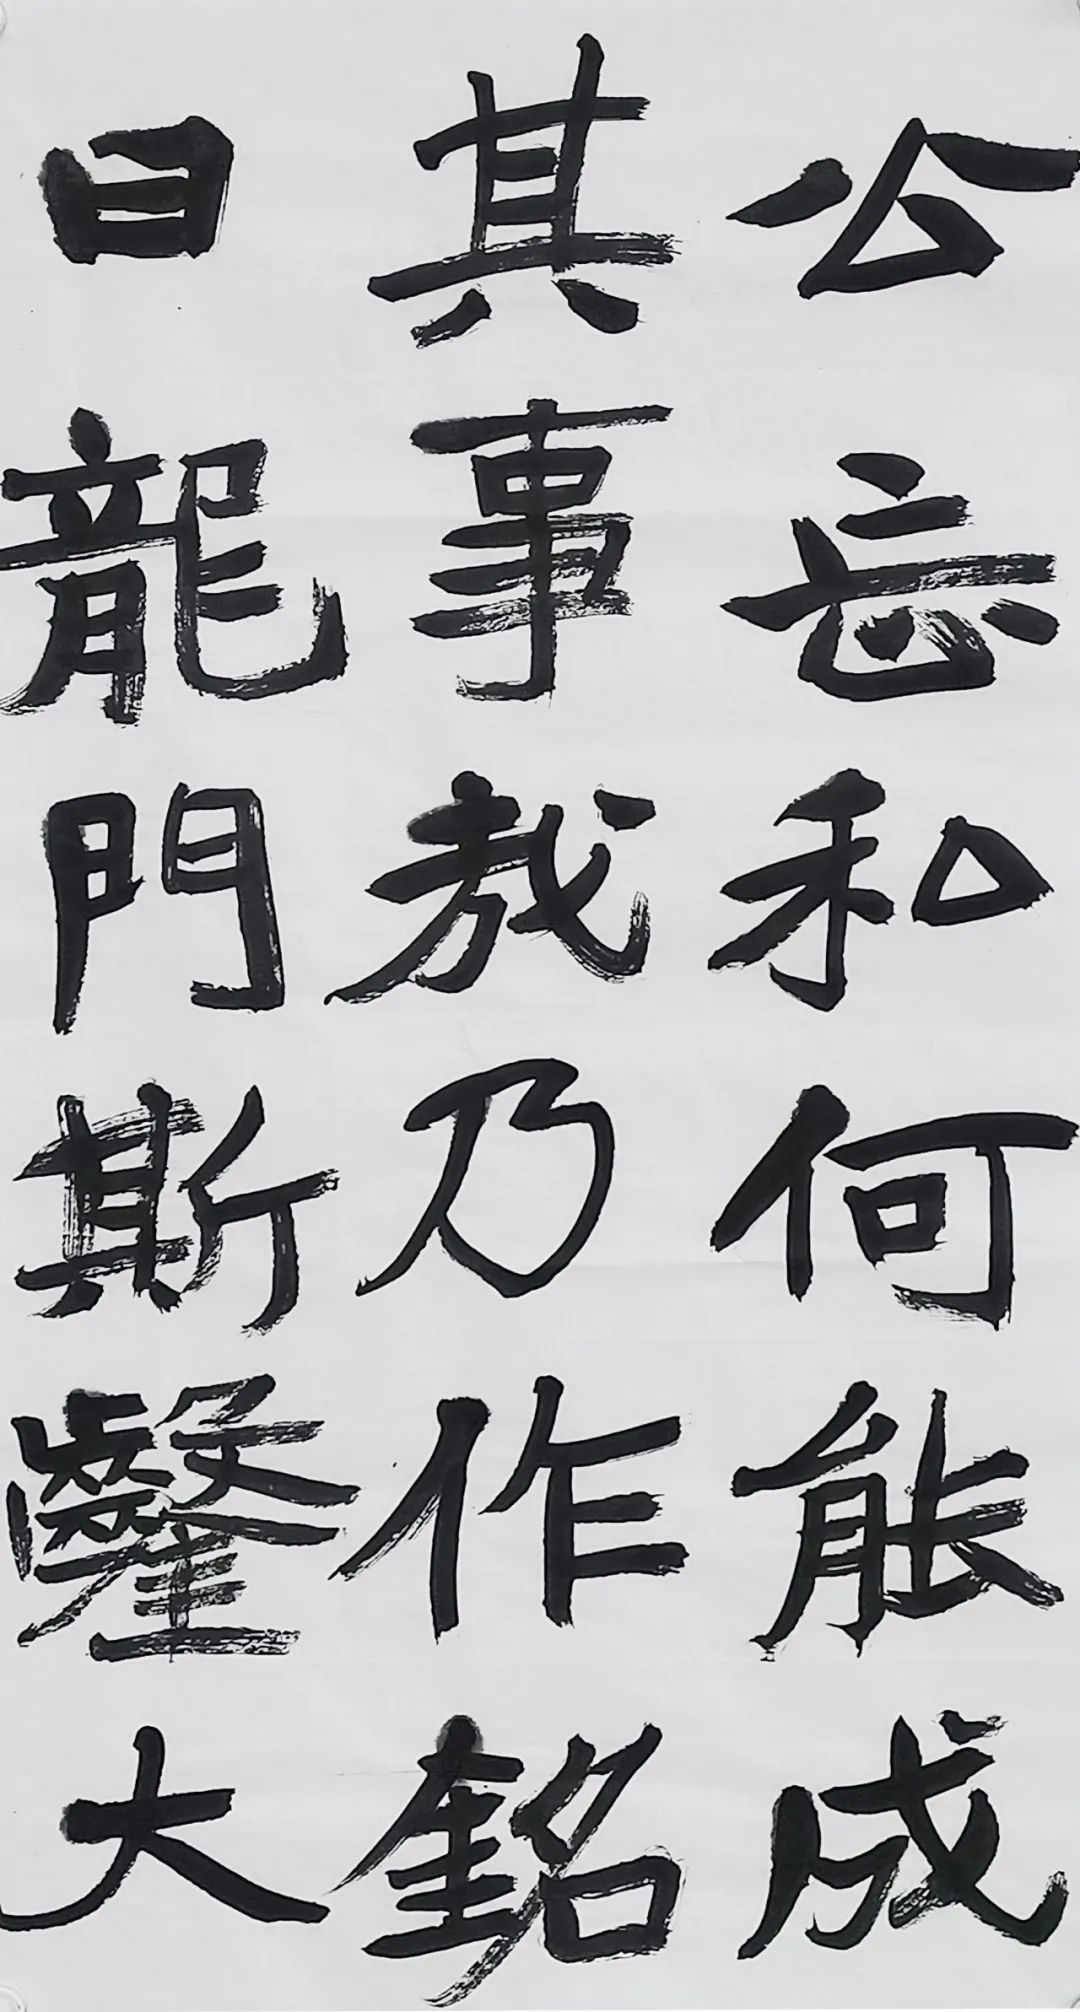 公忘私何能成
其事哉乃作銘
曰龍門斯鑿大